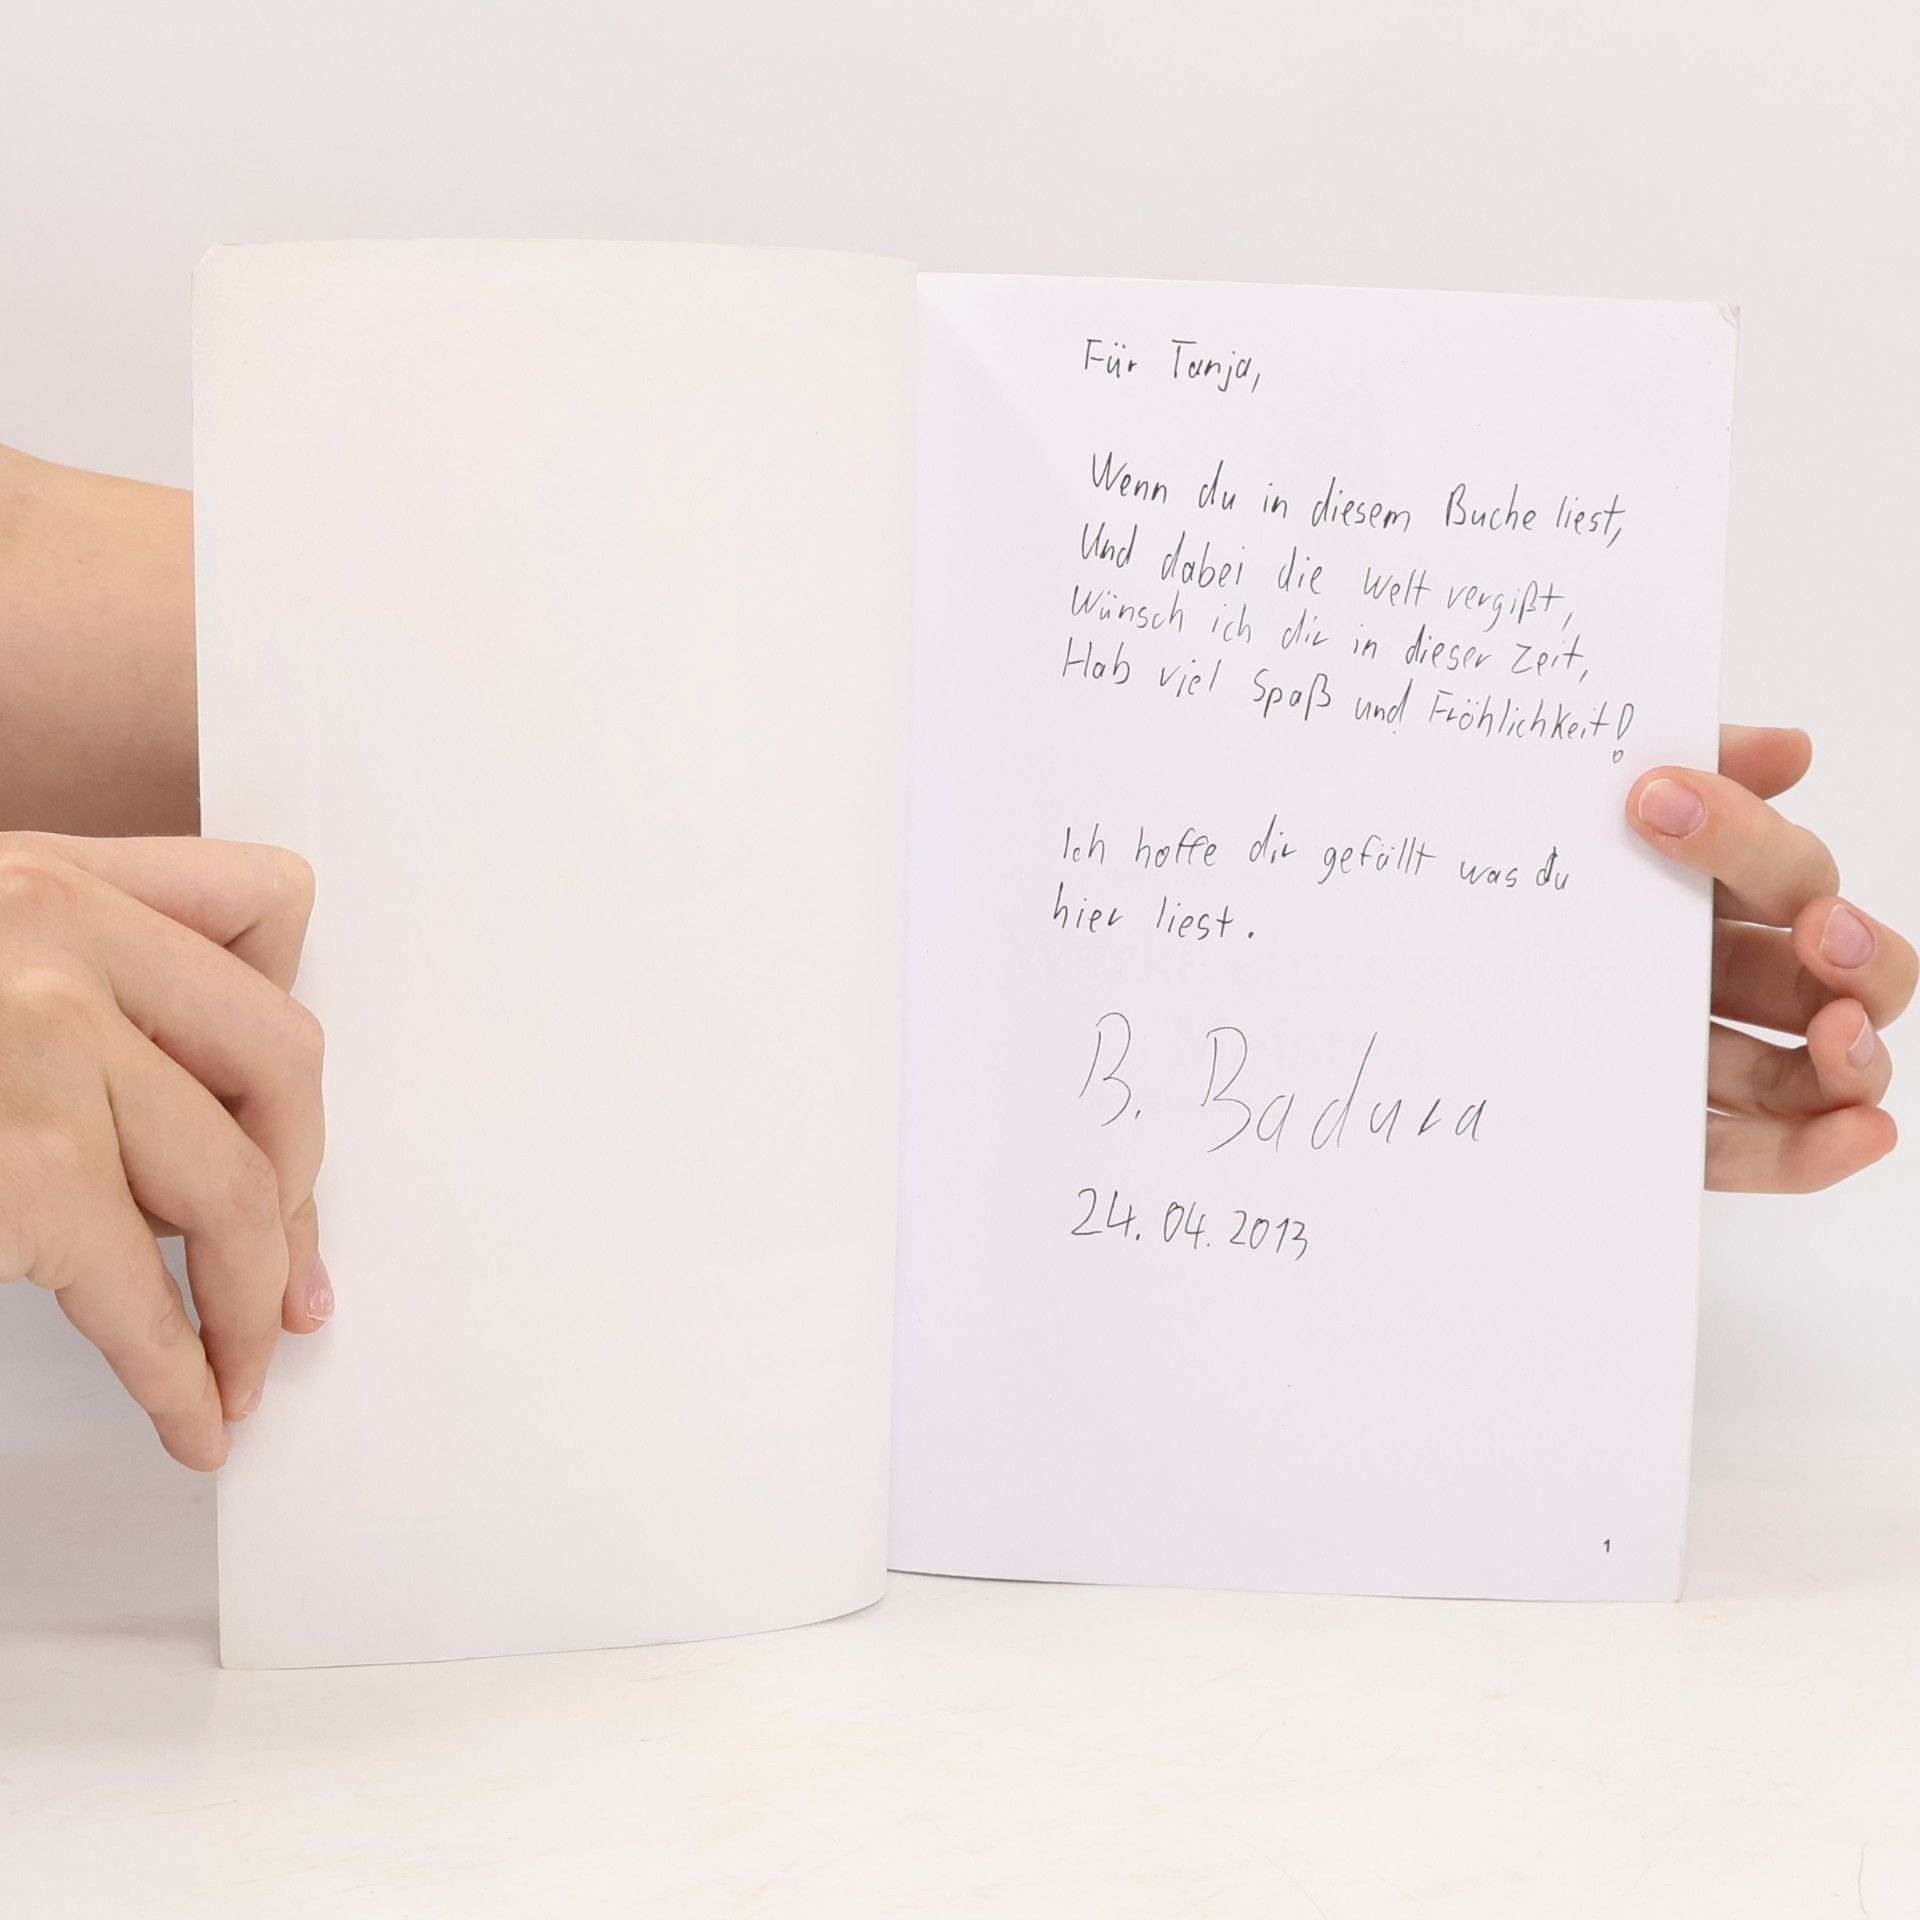 Für Tanja,
Wenn du in diesem Buche liest,
Und dabei die Welt vergißt,
Wünsch ich dir in dieser Zeit,
Hab viel Spaß und Fröhlichkeit!
Ich hoffe dir gefällt was du
hier liest.
B. Badura
24.04.2013
1